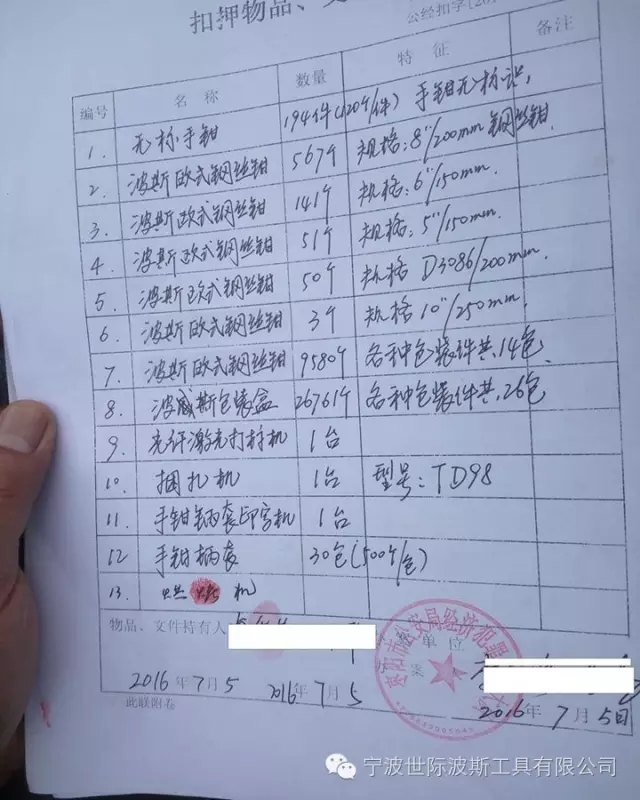 扣押物品、
公经扣字[20
编号 名称 数量 特征 备注
1. 无标手钳 194件(120个/件) 手钳无标识,
2. 波斯欧式钢丝钳 567个 规格:8"/200mm钢丝钳
3. 波斯欧式钢丝钳 141个 规格:6"/150mm.
4. 波斯欧式钢丝钳 51个 规格:5"/150mm.
5. 波斯欧式钢丝钳 50个 规格D3086/200mm.
6. 波斯欧式钢丝钳 3个 规格10"/250mm.
7. 波斯欧式钢丝钳 9580个 各种包装件共14包
8. 波威斯包装盒 26761个 各种包装件共26包
9. 光纤激光打标机 1台
10. 捆扎机 1台 型号:TD98
11. 手钳柄套印字机 1台
12 手钳柄套 30包(500个/包)
13. 机
物品、文件持有人
办案单位
市公安局经济犯罪
2016年7月5 2016年7月5 2016年7月5日
此联附卷
宁波世际波斯工具有限公司